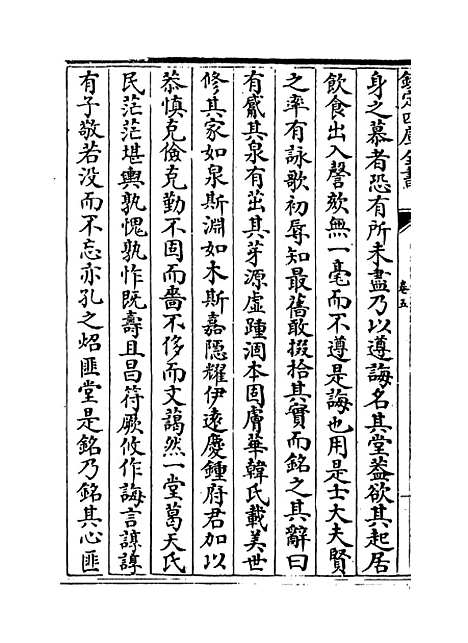 欽定四庫全書
卷五
身之慕者恐有所未盡乃以遵誨名其堂葢欲其起居
飲食出入謦欬無一毫而不遵是誨也用是士大夫賢
之率有詠歌初辱知最舊敢掇拾其實而銘之其辭曰
有觱其泉有茁其芽源虚踵涸本固膚華韓氏載美世
修其家如泉斯淵如木斯嘉隱耀伊逺慶鍾府君加以
恭慎克儉克勤不固而嗇不侈而文藹然一堂葛天氏
民茫茫堪輿孰愧孰怍既壽且昌符厥攸作誨言諄諄
有子敬若没而不忘亦孔之炤匪堂是銘乃銘其心匪